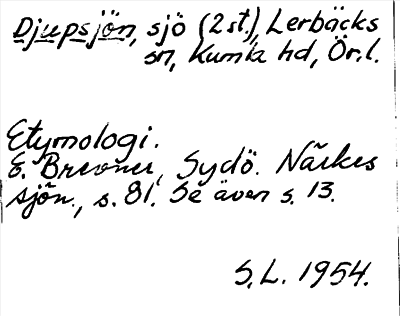 Djupsjön, sjö (2 st.), Lerbäcks
sn, Kumla hd, Ör.l.
Etymologi.
E. Brevner, Sydö. Närkes
sjön., s. 81. Se även s. 13.
S.L. 1954.